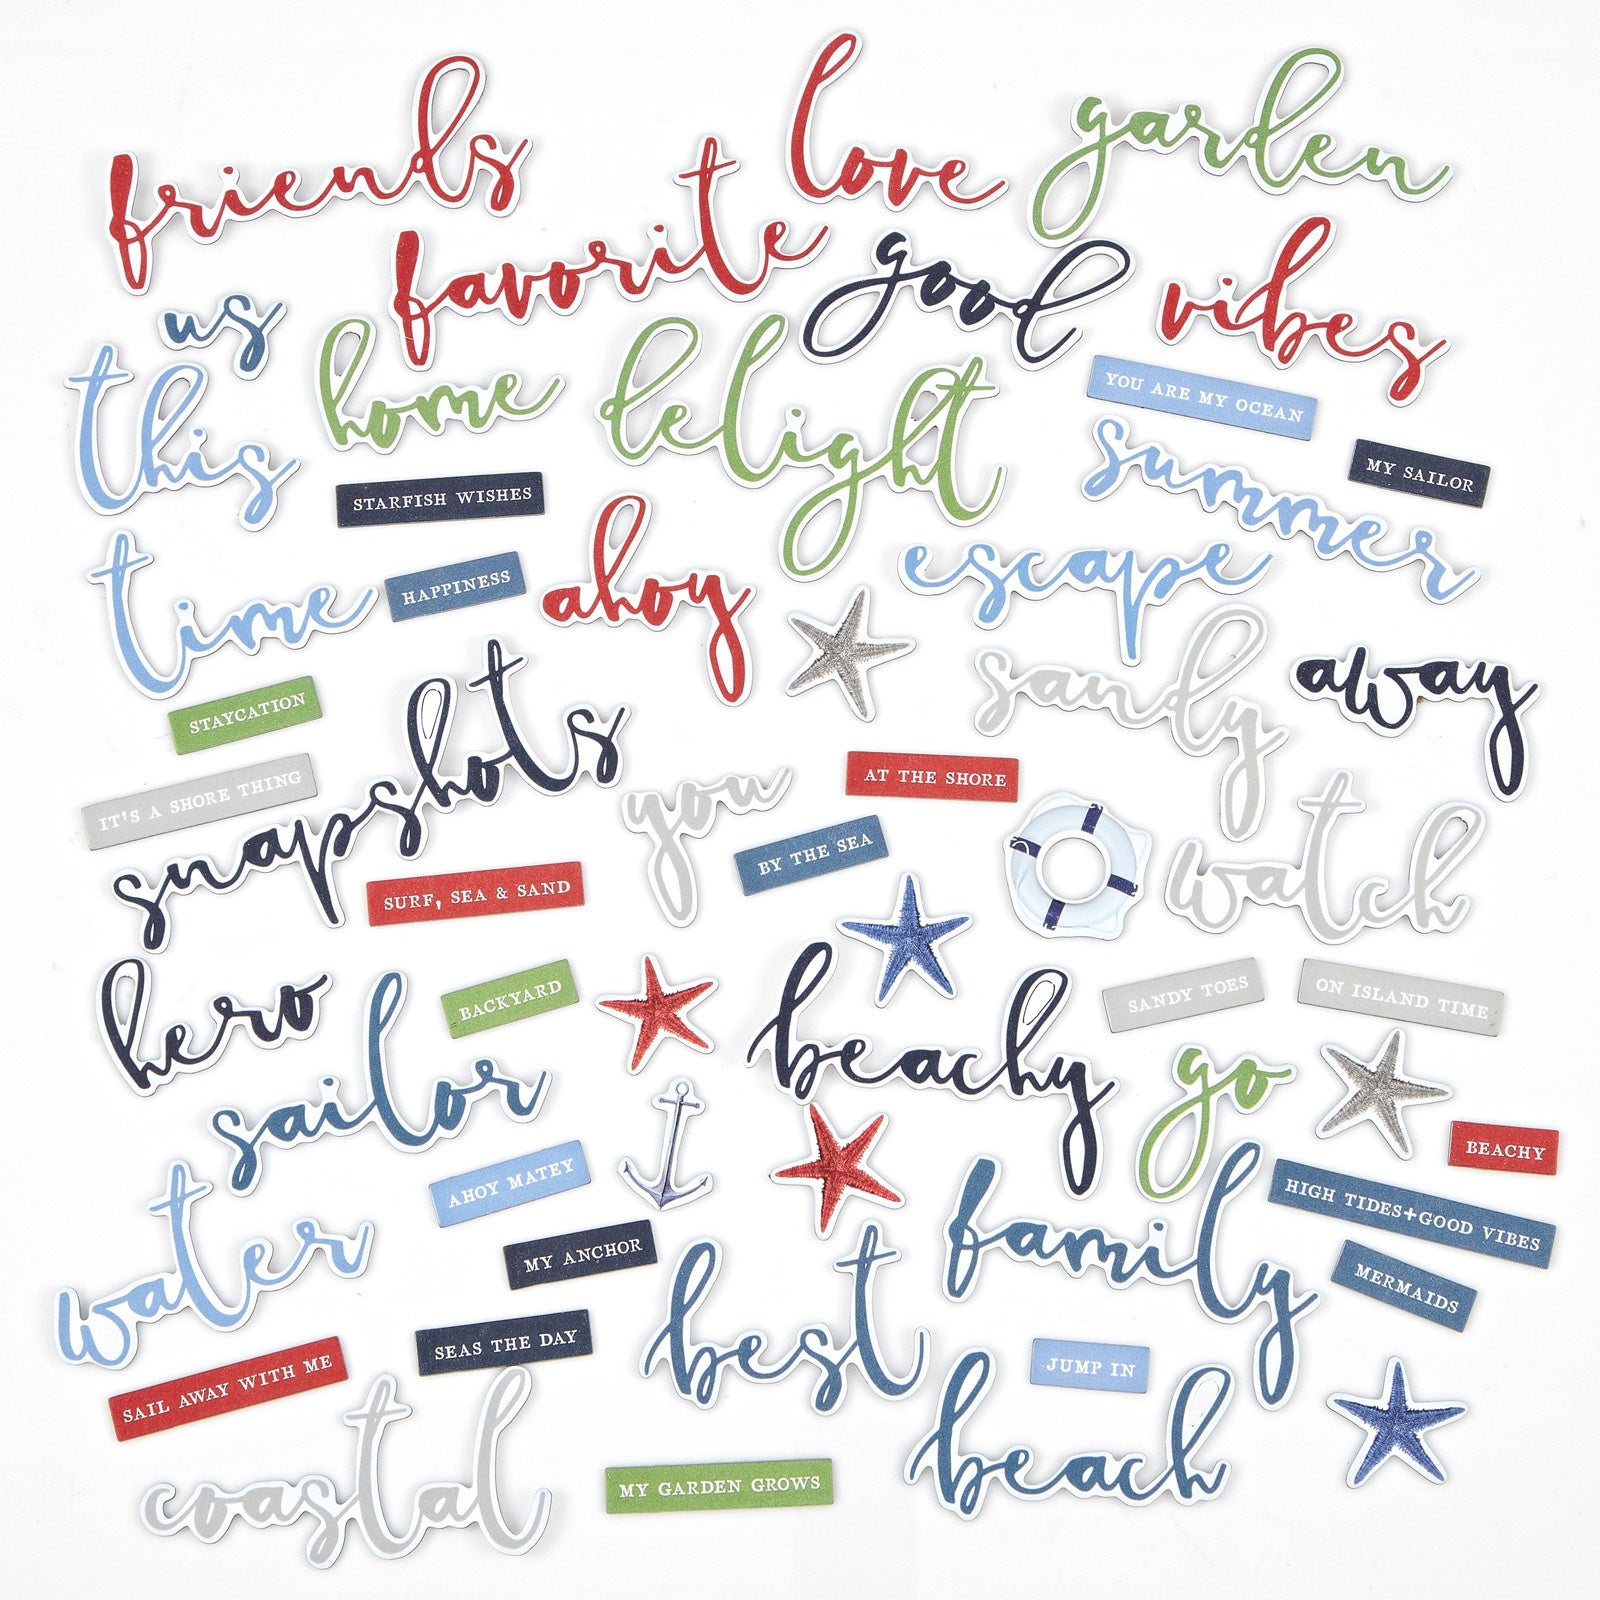 friends
love
garden
favorite
good
vibes
us
this
home
delight
YOU ARE MY OCEAN
summer
MY SAILOR
STARFISH WISHES
time
HAPPINESS
ahoy
escape
sandy
away
STAYCATION
snapshots
IT'S A SHORE THING
you
AT THE SHORE
BY THE SEA
watch
SURF, SEA & SAND
hero
sailor
BACKYARD
beachy
SANDY TOES
ON ISLAND TIME
go
BEACHY
AHOY MATEY
water
MY ANCHOR
family
HIGH TIDES+GOOD VIBES
MERMAIDS
best
SEAS THE DAY
SAIL AWAY WITH ME
JUMP IN
beach
coastal
MY GARDEN GROWS